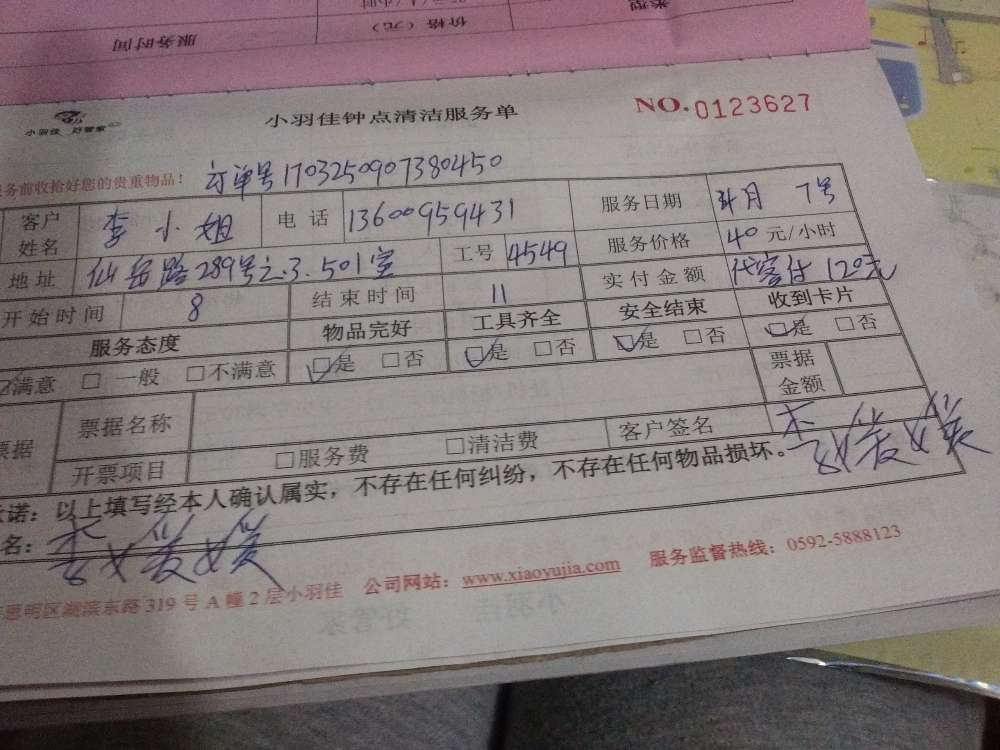 类型
价格（元）
服务时间
小羽佳 好管家
小羽佳钟点清洁服务单
NO.0123627
务前收拾好您的贵重物品！ 订单号1703250907380450
客户姓名 李小姐 电话 13600959431 服务日期 4月 7号
地址 仙岳路289号之3.501室 工号 4549 服务价格 40元/小时
开始时间 8 结束时间 11 实付金额 代客付120元
服务态度 物品完好 工具齐全 安全结束 收到卡片
☑满意 □一般 □不满意 ☑是 □否 ☑是 □否 ☑是 □否 ☑是 □否
票据 票据名称 票据金额
开票项目 □服务费 □清洁费 客户签名 李媛媛
诺：以上填写经本人确认属实，不存在任何纠纷，不存在任何物品损坏。
名：李媛媛
思明区湖滨东路319号A幢2层小羽佳 公司网站：www.xiaoyujia.com 服务监督热线：0592-5888123
小羽佳 好管家